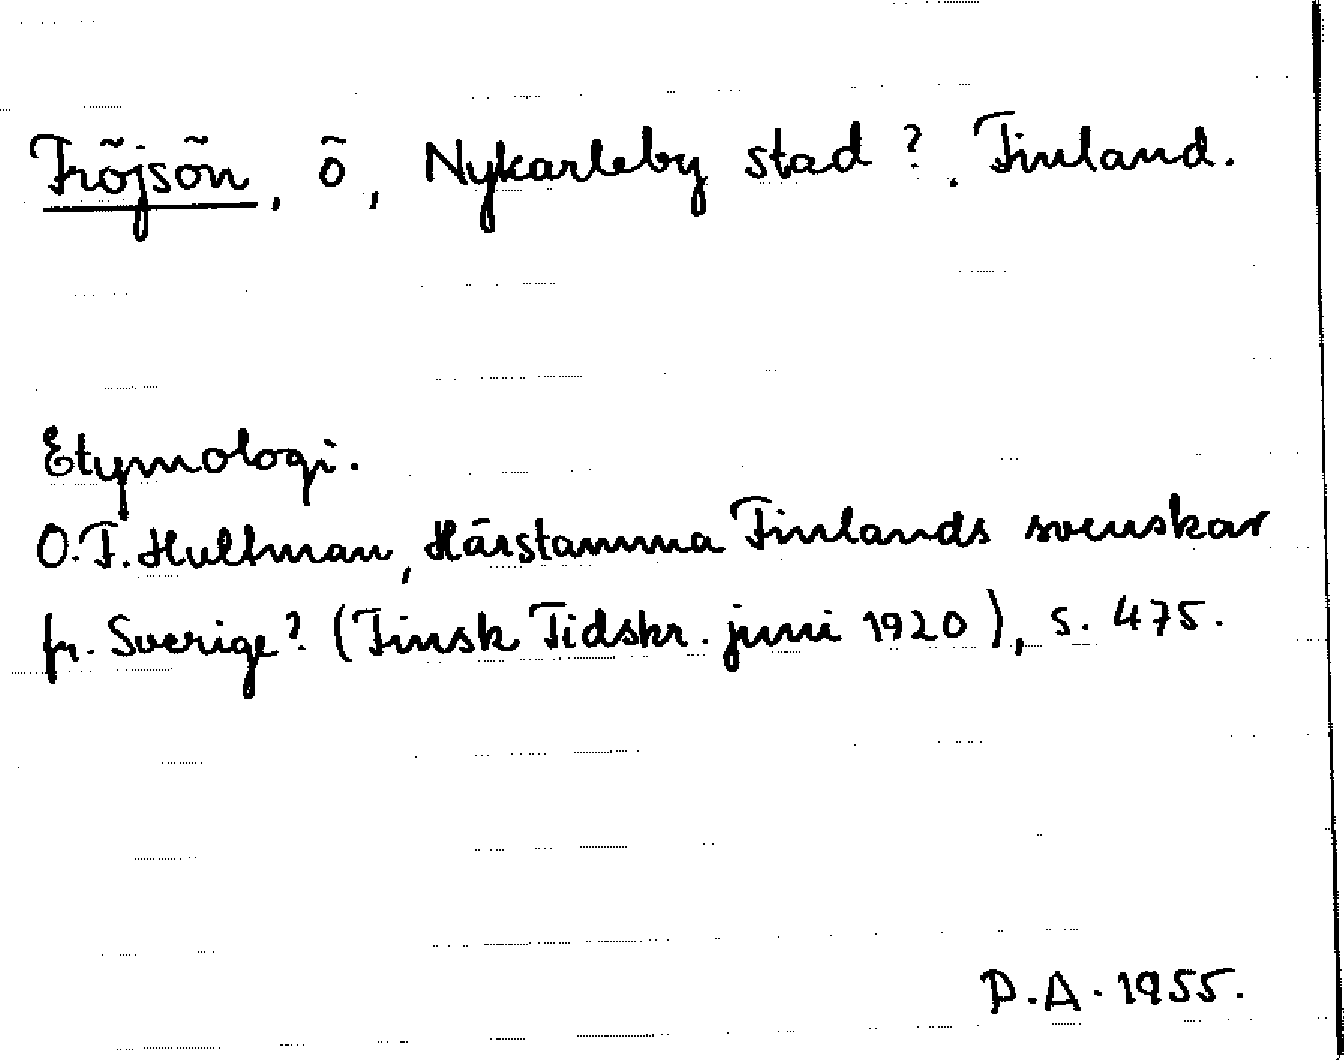 Fröjsön, ö, Nykarleby stad?. Finland.
Etymologi.
O.F. Hultman, Härstamma Finlands svenskar
fr. Sverige? (Finsk Tidskr. juni 1920), s. 475.
P.A. 1955.